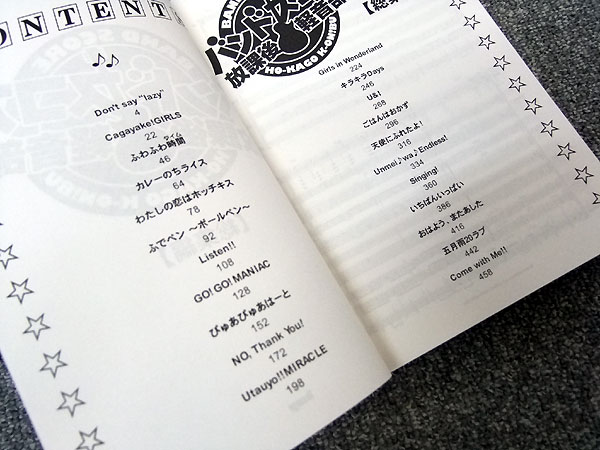 ONTENTS
♪♪
Don't say "lazy"
4
Cagayake!GIRLS
22
ふわふわ時間
タイム
46
カレーのちライス
64
わたしの恋はホッチキス
78
ふでペン ～ボールペン～
92
Listen!!
108
GO! GO! MANIAC
128
ぴゅあぴゅあはーと
152
NO, Thank You!
172
Utauyo!!MIRACLE
198
BAN
バンドス
放課後
軽音部
HO-KAGO K-ONBU
【総
Girls in Wonderland
224
キラキラDays
246
U&I
268
ごはんはおかず
296
天使にふれたよ!
316
Unmei♪wa♪Endless!
334
Singing!
360
いちばんいっぱい
386
おはよう、またあした
416
五月雨20ラブ
442
Come with Me!!
458